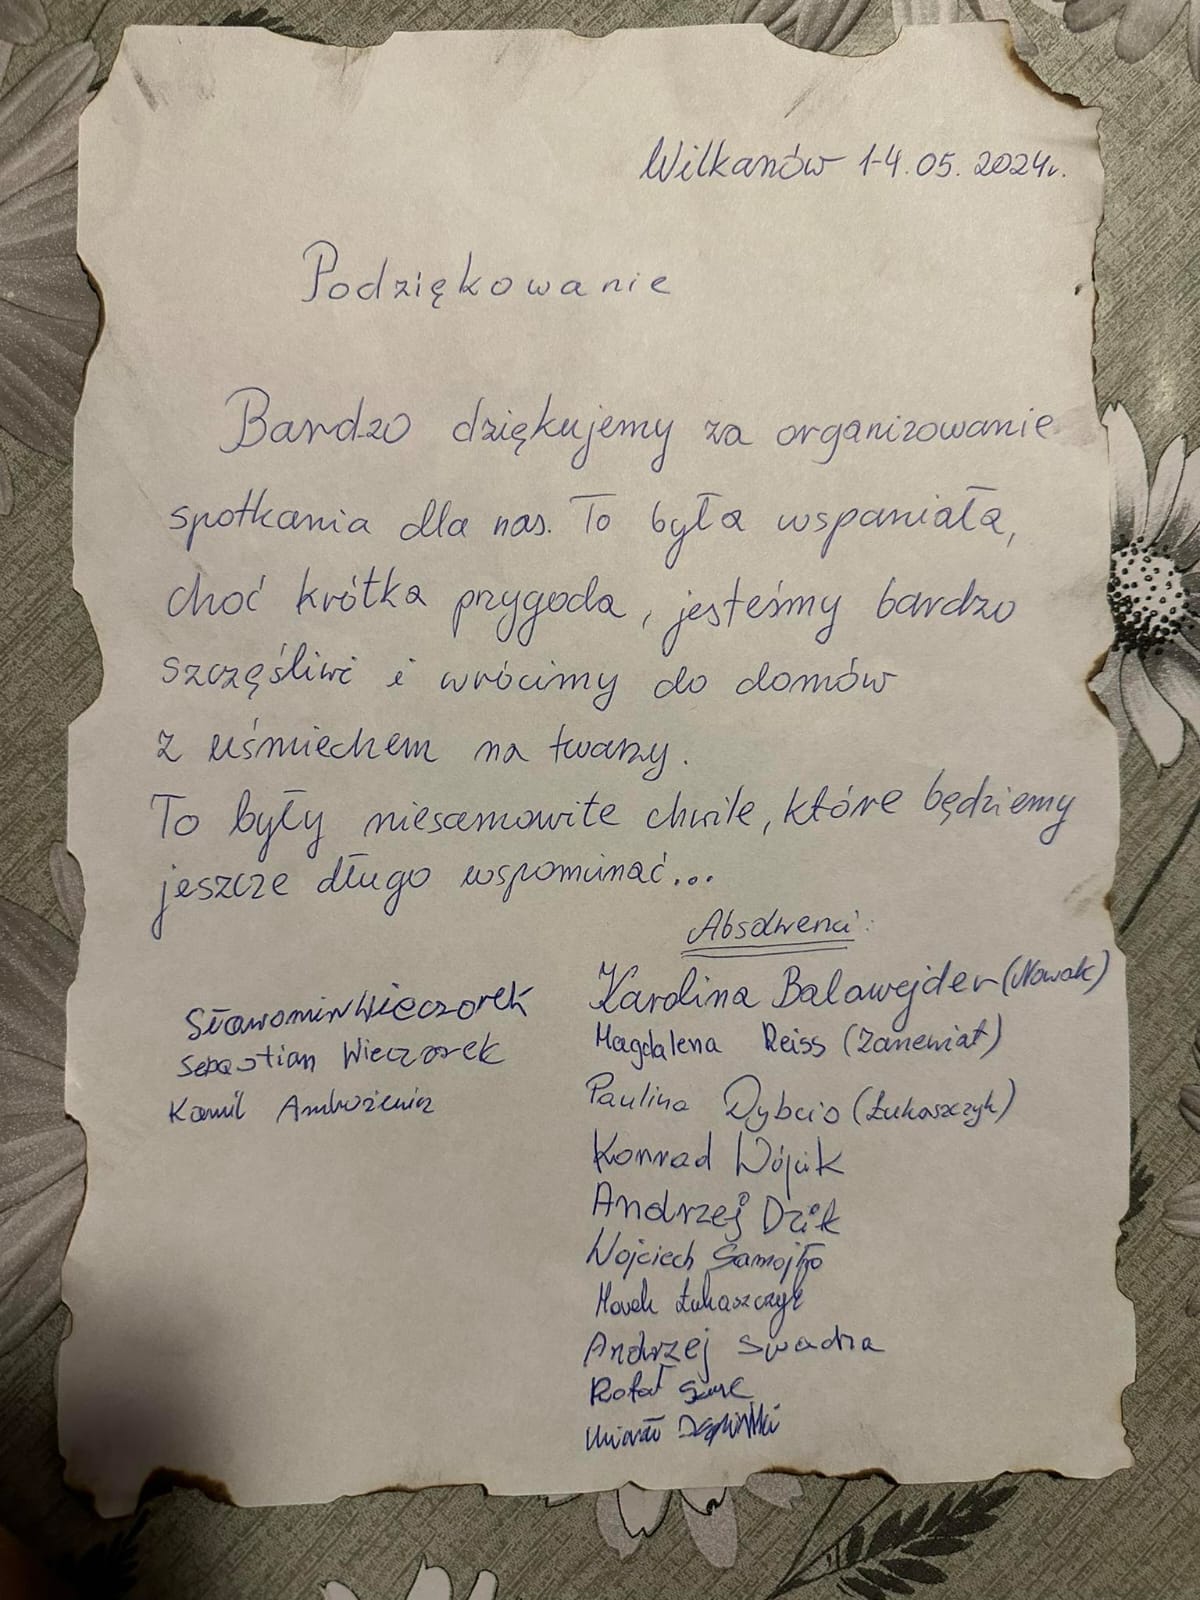 Wilkanów 1-4.05.2024r.
Podziękowanie
Bardzo dziękujemy za organizowanie
spotkania dla nas. To była wspaniała,
choć krótka przygoda, jesteśmy bardzo
szczęśliwi i wrócimy do domów
z uśmiechem na twarzy.
To były niesamowite chwile, które będziemy
jeszcze długo wspominać...
Absolwenci:
Karolina Balawejder (Nowak)
Magdalena Reiss (Zanewiat)
Paulina Dybcio (Łukaszczyk)
Konrad Wójcik
Andrzej Dzik
Wojciech Samojło
Marek Łukaszczyk
Andrzej Swadra
Rafał
Sławomir Wieczorek
Sebastian Wieczorek
Kamil Ambrożewicz